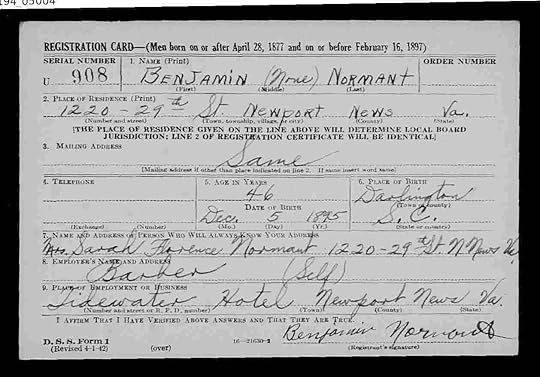 194_05004
REGISTRATION CARD—(Men born on or after April 28, 1877 and on or before February 16, 1897)
SERIAL NUMBER 1. NAME (Print) ORDER NUMBER
U 908 BENJAMIN (None) NORMANT
(First) (Middle) (Last)
2. PLACE OF RESIDENCE (Print)
1220-29th St. NEWPORT NEWS Va.
(Number and street) (Town, township, village, or city) (County) (State)
[THE PLACE OF RESIDENCE GIVEN ON THE LINE ABOVE WILL DETERMINE LOCAL BOARD
JURISDICTION; LINE 2 OF REGISTRATION CERTIFICATE WILL BE IDENTICAL]
3. MAILING ADDRESS
Same
[Mailing address if other than place indicated on line 2. If same insert word same]
4. TELEPHONE 5. AGE IN YEARS 6. PLACE OF BIRTH
46 Darlington
DATE OF BIRTH (Town or county)
Dec. 5 1895 S.C.
(Exchange) (Number) (Mo.) (Day) (Yr.) (State or country)
7. NAME AND ADDRESS OF PERSON WHO WILL ALWAYS KNOW YOUR ADDRESS
Mrs. Sarah Florence Normant 1220-29 St. N. News Va.
8. EMPLOYER'S NAME AND ADDRESS
Barber (Self)
9. PLACE OF EMPLOYMENT OR BUSINESS
Tidewater Hotel Newport News Va.
(Number and street or R. F. D. number) (Town) (County) (State)
I AFFIRM THAT I HAVE VERIFIED ABOVE ANSWERS AND THAT THEY ARE TRUE.
Benjamin Normant
D. S. S. Form 1
(Revised 4-1-42) (over) 16—21630-2 (Registrant's signature)